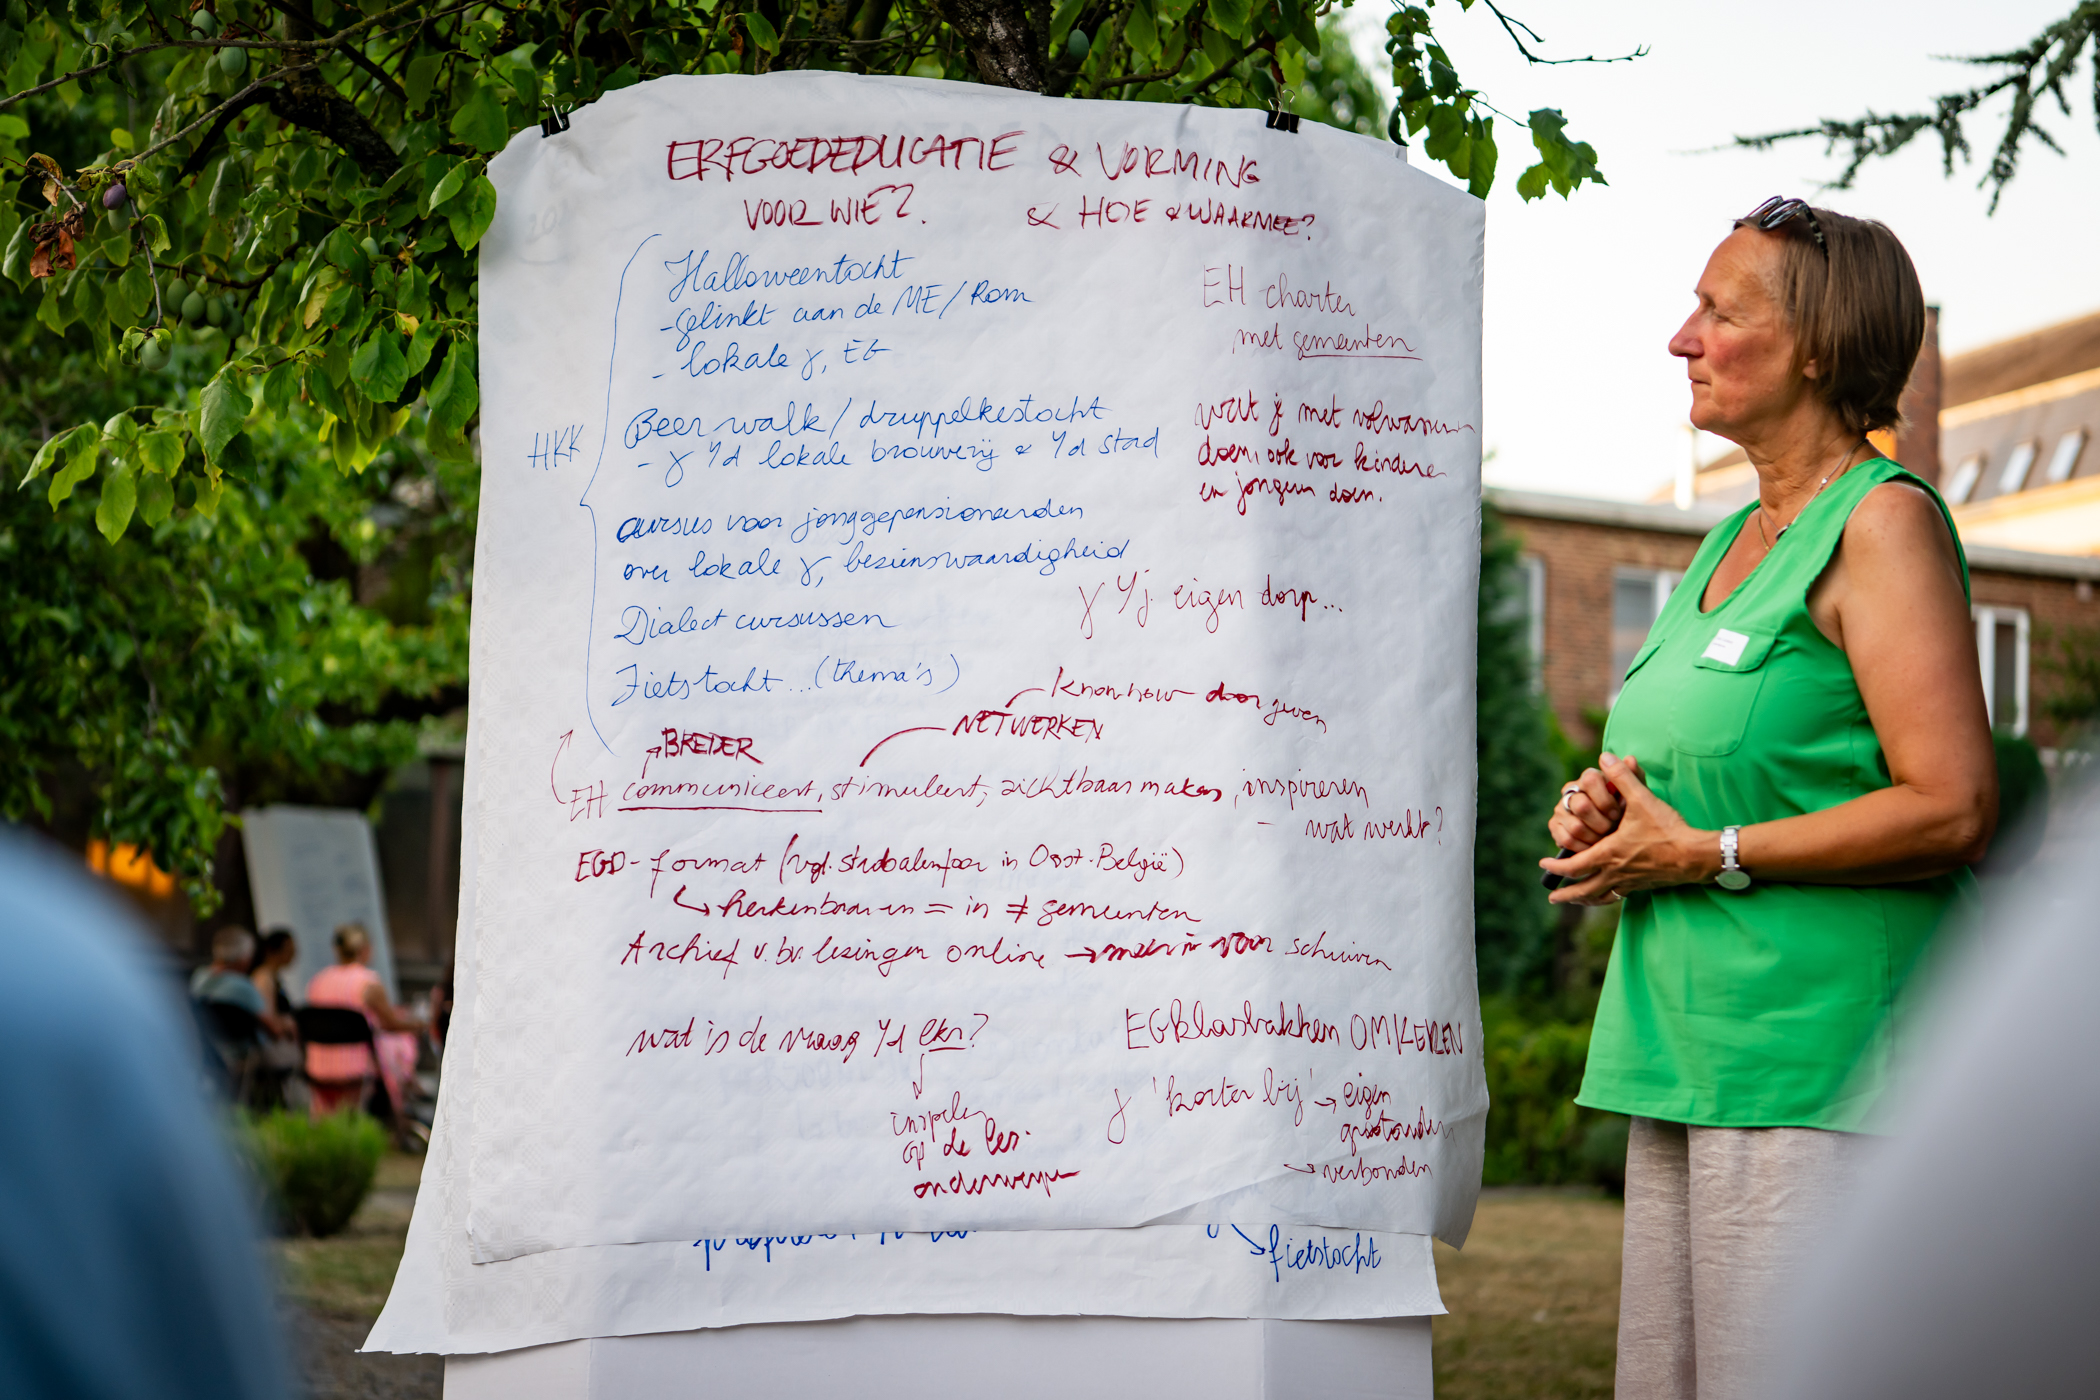 ERFGOEDEDUCATIE & VORMING
VOOR WIE?. & HOE & WAARMEE?
Halloweentocht
- gelinkt aan de ME/Rom
- lokale γ, EG
HKK
Beer walk / druppelkestocht
- γ v/d lokale brouwerij & v/d stad
cursus voor jonggepensioneerden
over lokale γ, bezienswaardigheid
Dialect cursussen
Fietstocht...(thema's)
EH charter
met gemeenten
wat je met volwassenen
doen, ook voor kinderen
en jongeren doen.
γ v/j eigen dorp...
Knowhow doorgeven
NETWERKEN
BREDER
EH communiceert, stimuleert, zichtbaar maken, inspireren
- wat werkt?
EGD-format (vgl. in Oost-België)
↳ herkenbaar en = in ≠ gemeenten
Archief v. bv. lezingen online → voor schuiven
wat is de vraag v/d lkr?
inspelen
op de les
onderwerpen
EGklasbakken OMKEREN
γ 'korter bij' → eigen
→ verbonden
fietstocht